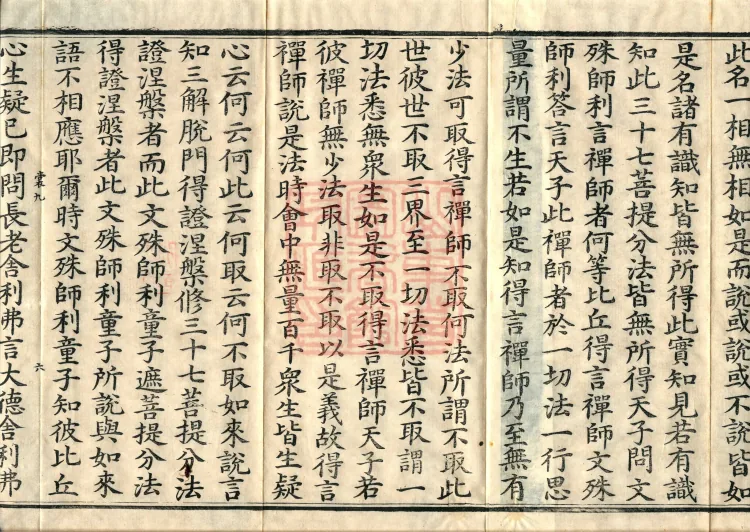 此名一相無相如是而說或說或不說皆如
是名諸有識知皆無所得此實知見若有識
知此三十七菩提分法皆無所得天子問文
殊師利言禪師者何等比丘得言禪師文殊
師利答言天子此禪師者於一切法一行思
量所謂不生若如是知得言禪師乃至無有
少法可取得言禪師不取何法所謂不取此
世彼世不取三界至一切法悉皆不取謂一
切法悉無衆生如是不取得言禪師天子若
彼禪師無少法取非取不取以是義故得言
禪師說是法時會中無量百千衆生皆生疑
心云何云何此云何取云何不取如來說言
知三解脫門得證涅槃修三十七菩提分法
證涅槃者而此文殊師利童子遮菩提分法
得證涅槃者此文殊師利童子所說與如來
語不相應耶爾時文殊師利童子知彼比丘
裳九
六
心生疑已即問長老舍利弗言大德舍利弗